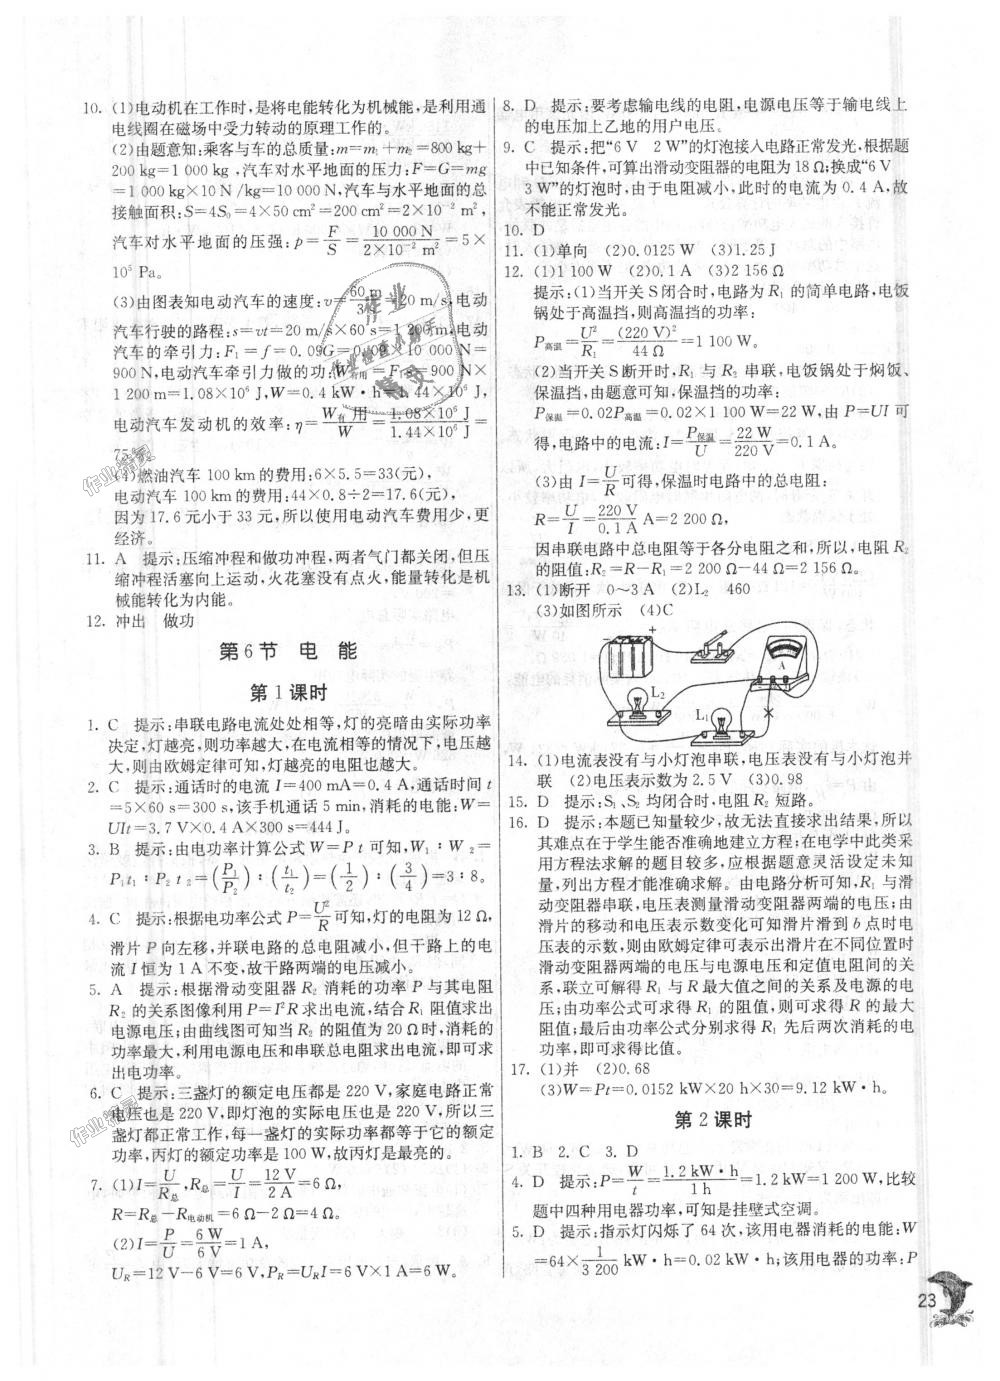 10. (1)电动机在工作时,是将电能转化为机械能,是利用通
电线圈在磁场中受力转动的原理工作的。
(2)由题意知:乘客与车的总质量:m=m₁+m₂=800 kg+
200 kg=1 000 kg,汽车对水平地面的压力:F=G=mg
=1 000 kg×10 N/kg=10 000 N,汽车与水平地面的总
接触面积:S=4S₀=4×50 cm²=200 cm²=2×10⁻² m²,
汽车对水平地面的压强:p=F/S=10 000 N/2×10⁻² m²=5×
10⁵ Pa。
(3)由图表知电动汽车的速度:v=60 m/3 s=20 m/s,电动
汽车行驶的路程:s=vt=20 m/s×60 s=1 200 m,电动
汽车的牵引力:F₁=f=0.09G=0.09×10 000 N=
900 N,电动汽车牵引力做的功:W有用=F₁s=900 N×
1 200 m=1.08×10⁶ J,W=0.4 kW·h=1.44×10⁶ J,
电动汽车发动机的效率:η=W有用/W=1.08×10⁶ J/1.44×10⁶ J=
75%
(4)燃油汽车 100 km的费用:6×5.5=33(元),
电动汽车 100 km的费用:44×0.8÷2=17.6(元),
因为17.6元小于33元,所以使用电动汽车费用少,更
经济。
11. A 提示:压缩冲程和做功冲程,两者气门都关闭,但压
缩冲程活塞向上运动,火花塞没有点火,能量转化是机
械能转化为内能。
12. 冲出 做功
第6节 电 能
第1课时
1. C 提示:串联电路电流处处相等,灯的亮暗由实际功率
决定,灯越亮,则功率越大,在电流相等的情况下,电压越
大,则由欧姆定律可知,灯越亮的电阻也越大。
2. C 提示:通话时的电流I=400 mA=0.4 A,通话时间t
=5×60 s=300 s,该手机通话5 min,消耗的电能:W=
UIt=3.7 V×0.4 A×300 s=444 J。
3. B 提示:由电功率计算公式W=Pt可知,W₁:W₂=
P₁t₁:P₂t₂=(P₁/P₂):(t₁/t₂)=(1/2):(3/4)=3:8。
4. C 提示:根据电功率公式P=U²/R可知,灯的电阻为12 Ω,
滑片P向左移,并联电路的总电阻减小,但干路上的电
流I恒为1 A不变,故干路两端的电压减小。
5. A 提示:根据滑动变阻器R₂消耗的功率P与其电阻
R₂的关系图像利用P=I²R求出电流,结合R₁阻值求出
电源电压;由曲线图可知当R₂的阻值为20 Ω时,消耗的
功率最大,利用电源电压和串联总电阻求出电流,即可求
出电功率。
6. C 提示:三盏灯的额定电压都是220 V,家庭电路正常
电压也是220 V,即灯泡的实际电压也是220 V,所以三
盏灯都正常工作,每一盏灯的实际功率都等于它的额定
功率,丙灯的功率是100 W,故丙灯是最亮的。
7. (1)I=U/R总,R总=U/I=12 V/2 A=6 Ω,
R=R总−R电动机=6 Ω−2 Ω=4 Ω。
(2)I=P/U=6 W/6 V=1 A,
U_R=12 V−6 V=6 V,P_R=U_R I=6 V×1 A=6 W。
8. D 提示:要考虑输电线的电阻,电源电压等于输电线上
的电压加上乙地的用户电压。
9. C 提示:把“6 V 2 W”的灯泡接入电路正常发光,根据题
中已知条件,可算出滑动变阻器的电阻为18 Ω;换成“6 V
3 W”的灯泡时,由于电阻减小,此时的电流为0.4 A,故
不能正常发光。
10. D
11. (1)单向 (2)0.0125 W (3)1.25 J
12. (1)1 100 W (2)0.1 A (3)2 156 Ω
提示:(1)当开关S闭合时,电路为R₁的简单电路,电饭
锅处于高温挡,则高温挡的功率:
P高温=U²/R₁=(220 V)²/44 Ω=1 100 W。
(2)当开关S断开时,R₁与R₂串联,电饭锅处于焖饭、
保温挡,由题意可知,保温挡的功率:
P保温=0.02P高温=0.02×1 100 W=22 W,由P=UI可
得,电路中的电流:I=P保温/U=22 W/220 V=0.1 A。
(3)由I=U/R可得,保温时电路中的总电阻:
R=U/I=220 V/0.1 A A=2 200 Ω,
因串联电路中总电阻等于各分电阻之和,所以,电阻R₂
的阻值:R₂=R−R₁=2 200 Ω−44 Ω=2 156 Ω。
13. (1)断开 0~3 A (2)L₂ 460
(3)如图所示 (4)C
− +
A
L₂
L₁
14. (1)电流表没有与小灯泡串联,电压表没有与小灯泡并
联 (2)电压表示数为2.5 V (3)0.98
15. D 提示:S₁、S₂均闭合时,电阻R₂短路。
16. D 提示:本题已知量较少,故无法直接求出结果,所以
其难点在于学生能否准确地建立方程;在电学中此类采
用方程法求解的题目较多,应根据题意灵活设定未知
量,列出方程才能准确求解。由电路分析可知,R₁与滑
动变阻器串联,电压表测量滑动变阻器两端的电压;由
滑片的移动和电压表示数变化可知滑片滑到b点时电
压表的示数,则由欧姆定律可表示出滑片在不同位置时
滑动变阻器两端的电压与电源电压和定值电阻间的关
系,联立可解得R₁与R最大值之间的关系及电源的电
压;由功率公式可求得R₁的阻值,则可求得R的最大
阻值;最后由功率公式分别求得R₁先后两次消耗的电
功率,即可求得比值。
17. (1)并 (2)0.68
(3)W=Pt=0.0152 kW×20 h×30=9.12 kW·h。
第2课时
1. B 2. C 3. D
4. D 提示:P=W/t=1.2 kW·h/1 h=1.2 kW=1 200 W,比较
题中四种用电器功率,可知是挂壁式空调。
5. D 提示:指示灯闪烁了64次,该用电器消耗的电能:W
=64×1/3 200 kW·h=0.02 kW·h;该用电器的功率:P
23